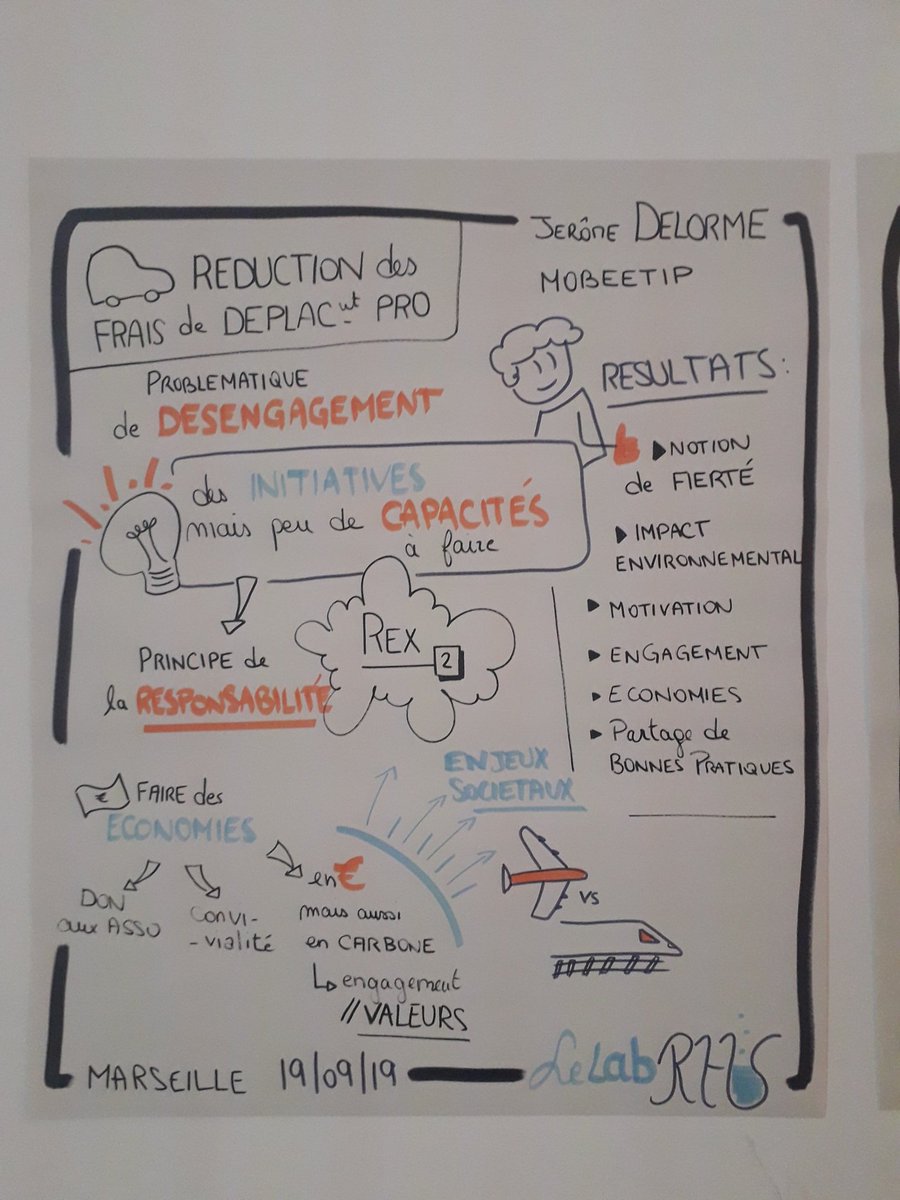 REDUCTION des
FRAIS de DEPLACMT PRO
JERÔME DELORME
MOBEETIP
PROBLEMATIQUE
de DESENGAGEMENT
des INITIATIVES
mais peu de CAPACITÉS
à faire
PRINCIPE de
la RESPONSABILITÉ
REX
2
RESULTATS:
NOTION
de FIERTÉ
IMPACT
ENVIRONNEMENTAL
MOTIVATION
ENGAGEMENT
ECONOMIES
Partage de
BONNES PRATIQUES
€ FAIRE des
ECONOMIES
DON
aux ASSO
Convi-
-vialité
en €
mais aussi
en CARBONE
engagement
// VALEURS
ENJEUX
SOCIETAUX
VS
MARSEILLE 19/09/19
LeLab RHS